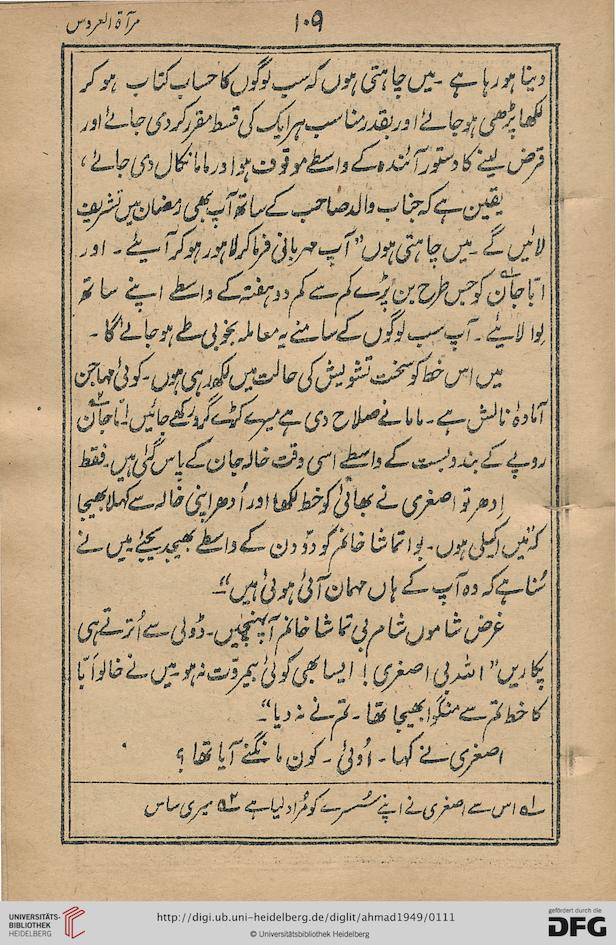 مرآۃ العروس
۱۰۹
دینا ہو رہا ہے ۔ میں چاہتی ہوں کہ سب لوگوں کا حساب کتاب ہو کر
لکھا پڑھی ہو جائے اور بقدر مناسب ہر ایک کی قسط مقرر کر دی جائے اور
قرض لینے کا دستور آئندہ کے واسطے موقوف ہو اور ماما نکال دی جائے ،
یقین ہے کہ جناب والد صاحب کے ساتھ آپ بھی رمضان میں تشریف
لائیں گے ۔ میں چاہتی ہوں” آپ مہربانی فرما کر لاہور ہو کر آیئے ۔ اور
ابّا جان کو جس طرح بن پڑے کم سے کم دو ہفتہ کے واسطے اپنے ساتھ
لوا لائیے ۔ آپ سب لوگوں کے سامنے یہ معاملہ بخوبی طے ہو جائے گا ۔
میں اس خط کو سخت تشویش کی حالت میں لکھ رہی ہوں ۔ کوئی مہاجن
آمادۂ نالش ہے ۔ ماما نے صلاح دی ہے میرے کڑے گرو رکھے جائیں ۔ امّاجان
روپے کے بندوبست کے واسطے اسی وقت خالہ جان کے پاس گئی ہیں ۔ فقط
ادھر تو اصغری نے بھائی کو خط لکھا اور اُدھر اپنی خالہ سے کہلا بھیجا
کہ میں اکیلی ہوں ۔ بوا تماشا خانم کو دو دن کے واسطے بھیجدیجئے میں نے
سُنا ہے کہ وہ آپ کے ہاں مہمان آئی ہوئی ہیں“۔
غرض شاموں شام بی تماشا خانم آ پہنچیں ۔ ڈولی سے اُترتے ہی
پکاریں” اللہ بی اصغری ! ایسا بھی کوئی بیمروّت نہ ہو ۔ میں نے خالو ابّا
کا خط تم سے منگوا بھیجا تھا ۔ تم نے نہ دیا“۔
اصغری نے کہا ۔ اُوئی ۔ کون مانگنے آیا تھا ؟
۱؎ اس سے اصغری نے اپنے سُسرے کو مُراد لیا ہے ۲؎ میری ساس
UNIVERSITÄTS-
BIBLIOTHEK
HEIDELBERG
http://digi.ub.uni-heidelberg.de/diglit/ahmad1949/0111
© Universitätsbibliothek Heidelberg
gefördert durch die
DFG